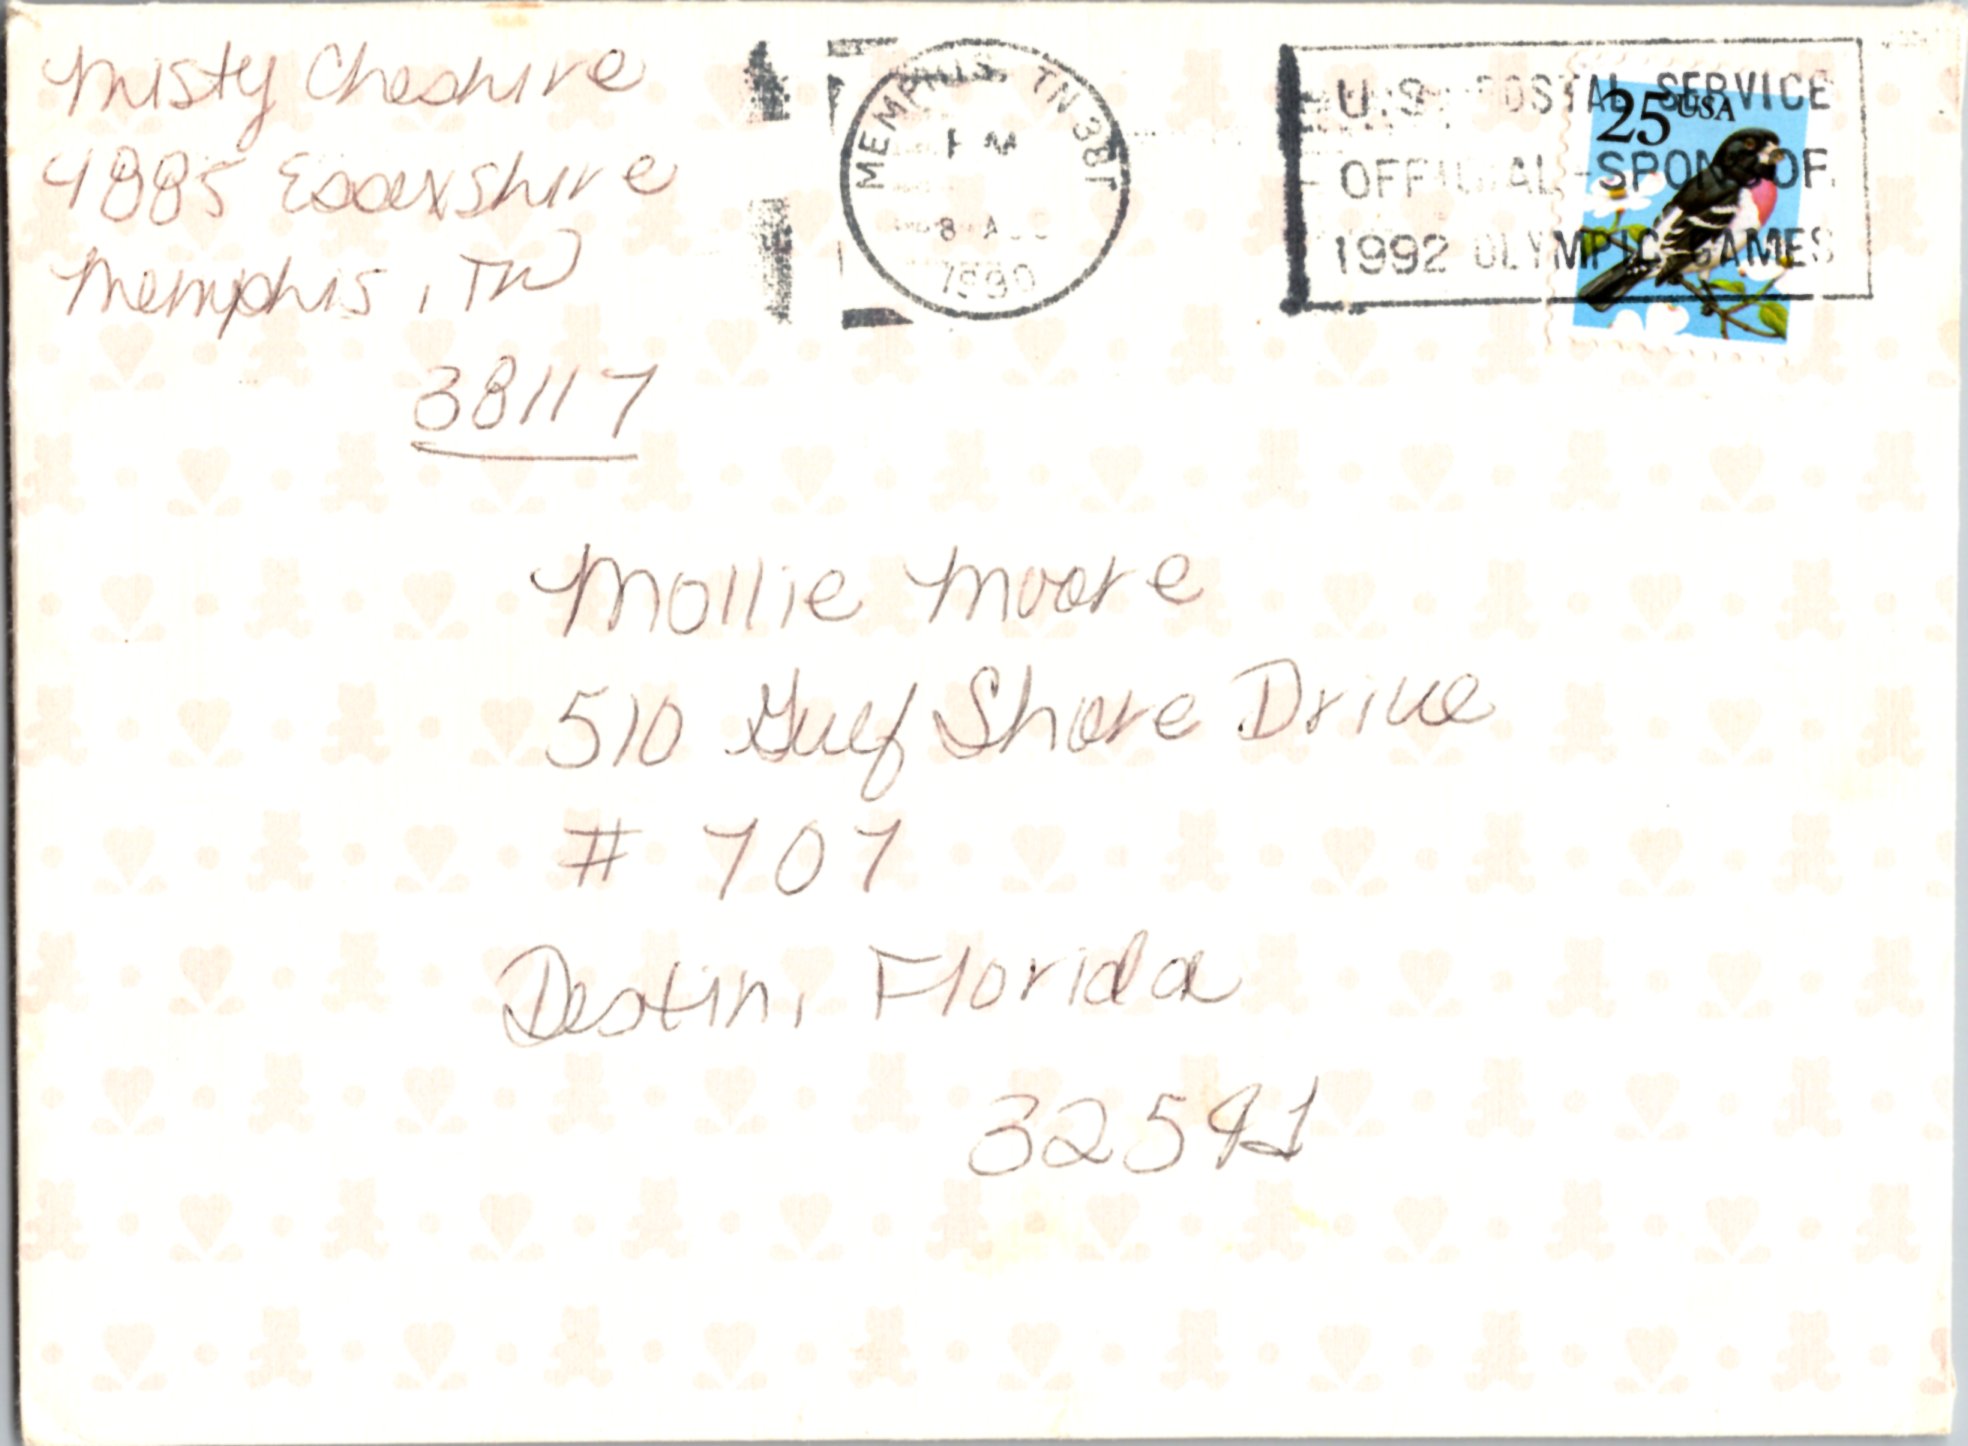 Misty Cheshire
4885 Essexshire
Memphis, TN
38117
MEMPHIS, TN 381
PM
8 AUG
1990
U.S. POSTAL SERVICE
OFFICIAL SPONSOR
1992 OLYMPIC GAMES
25 USA
Mollie Moore
510 Gulf Shore Drive
# 707
Destin, Florida
32541